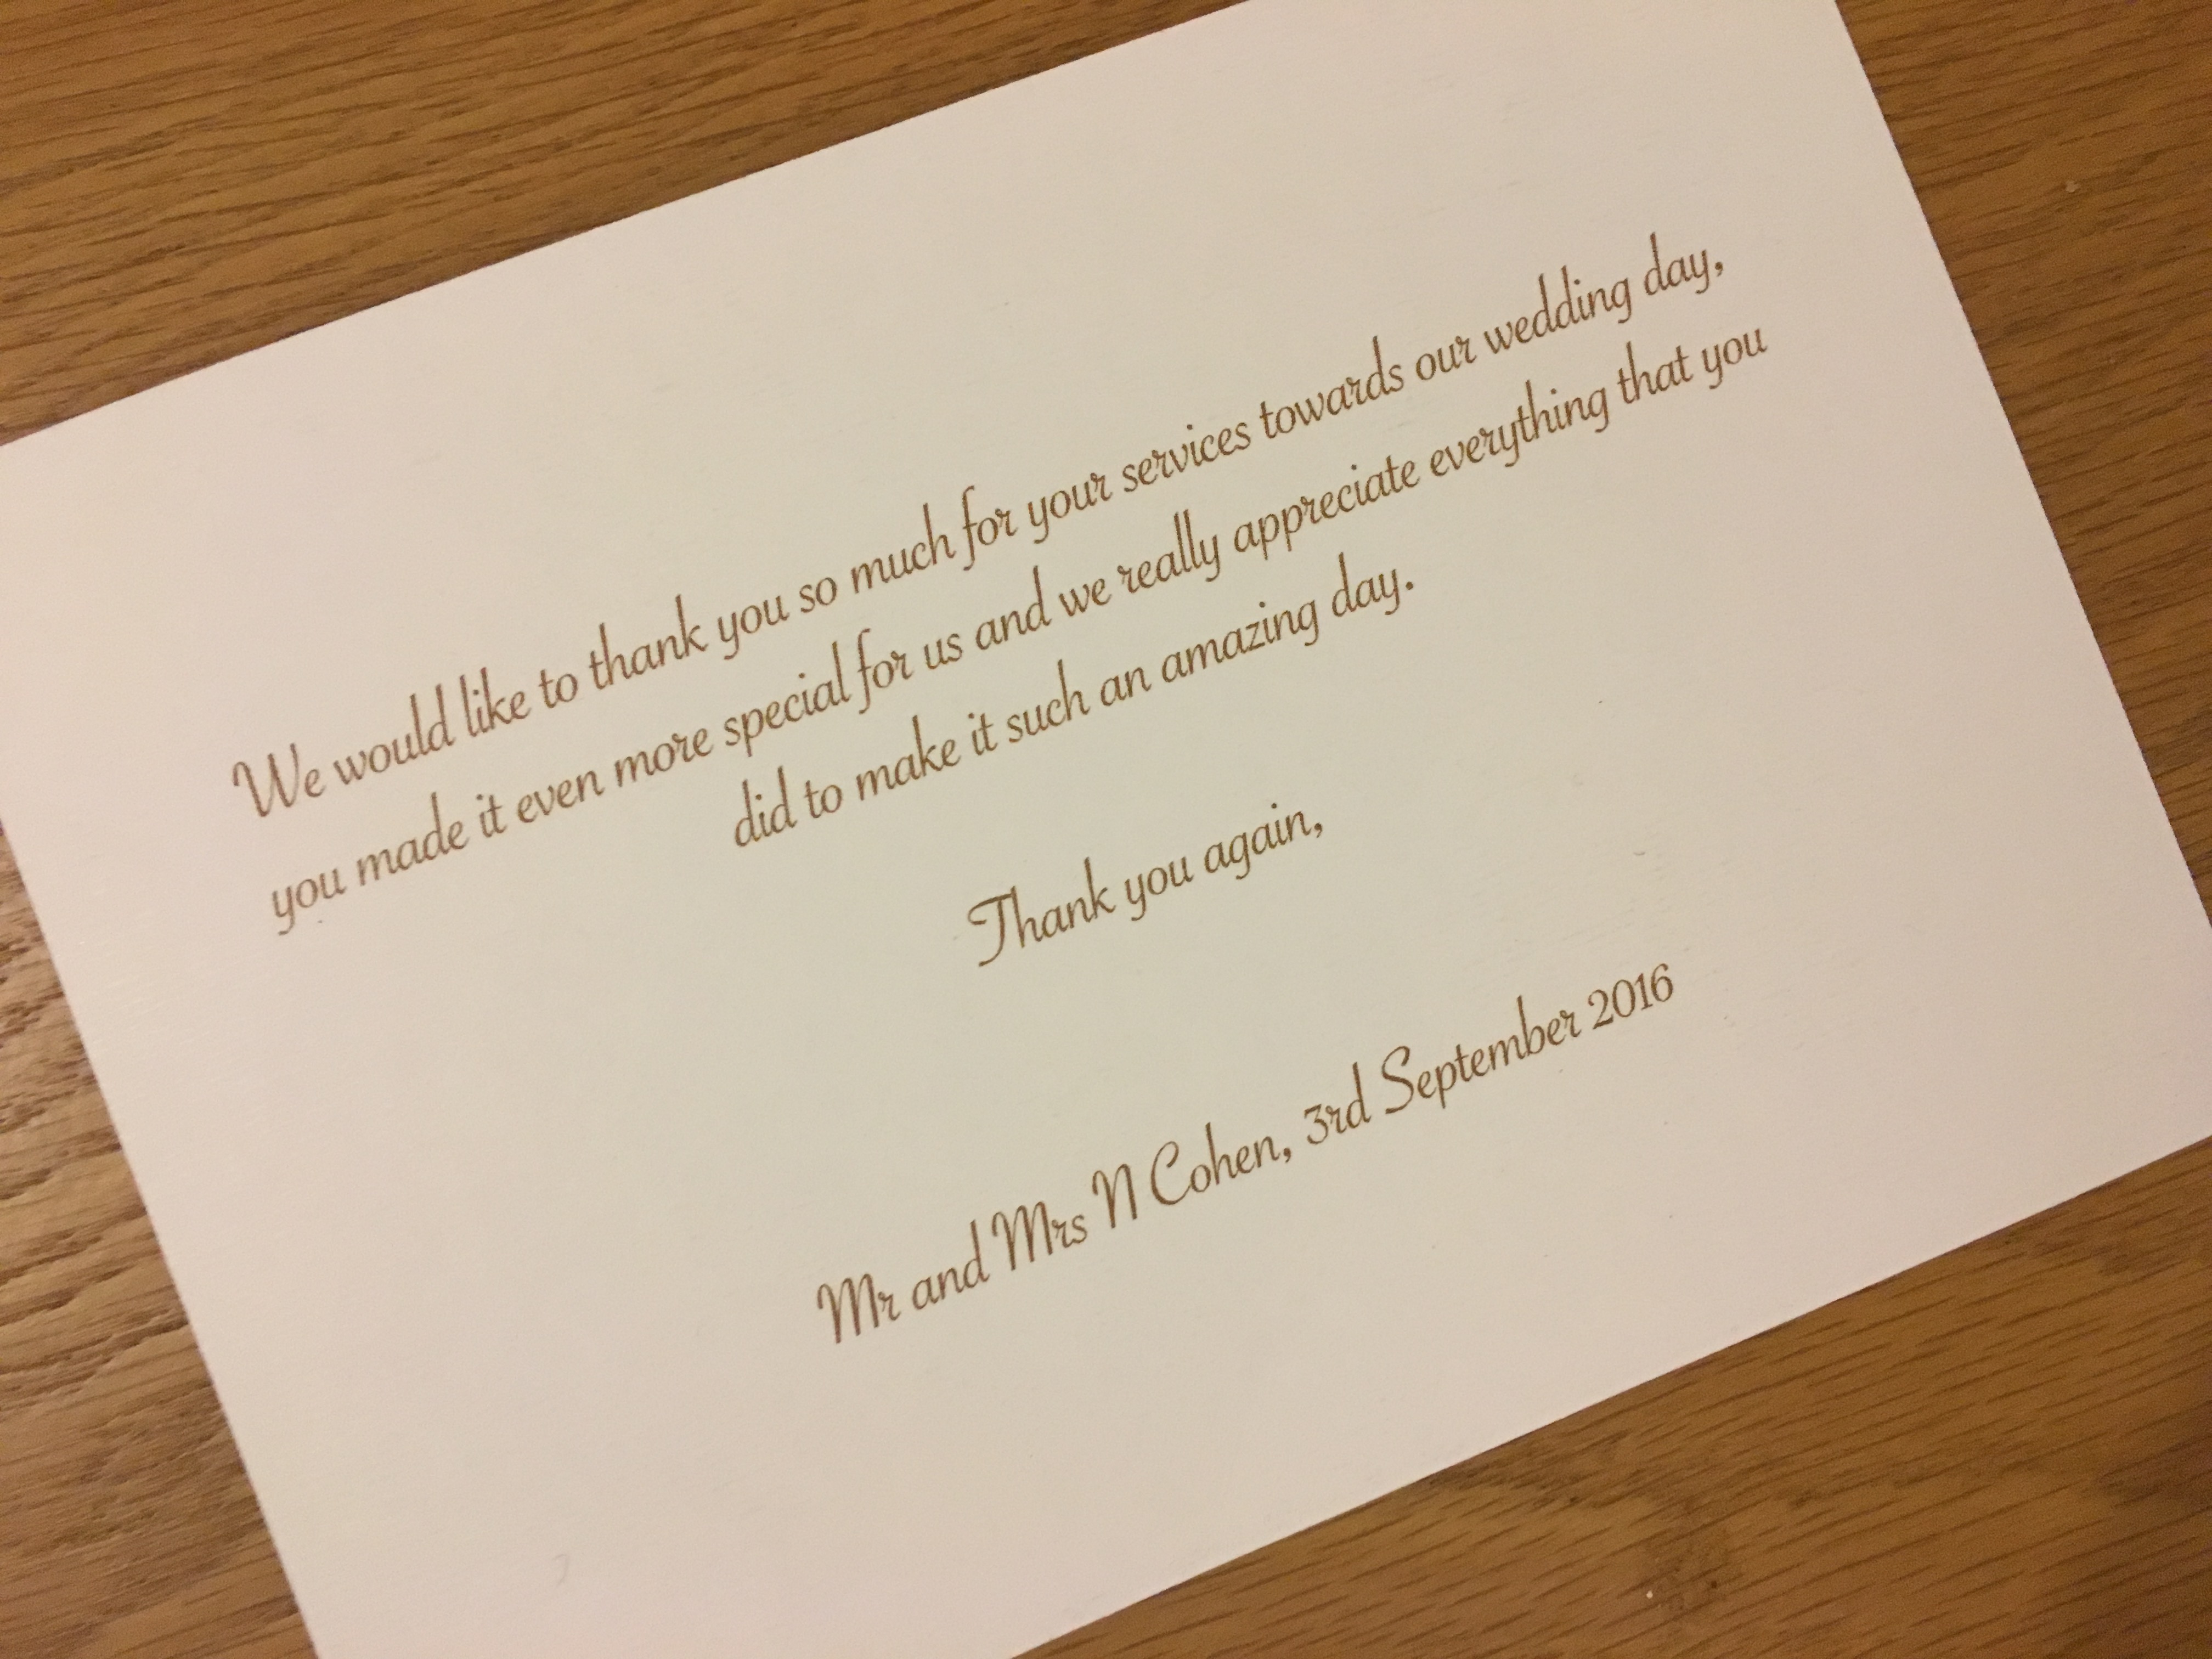 We would like to thank you so much for your services towards our wedding day,
you made it even more special for us and we really appreciate everything that you
did to make it such an amazing day.
Thank you again,
Mr and Mrs N Cohen, 3rd September 2016